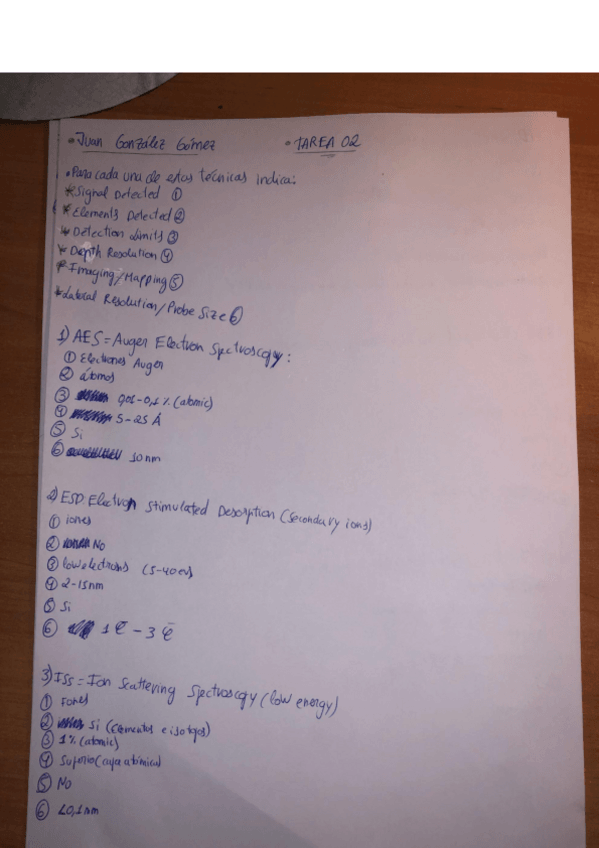 • Juan González Gómez • TAREA 02
• Para cada una de estas técnicas indica:
* Signal Detected ①
* Elements Detected ②
* Detection Limits ③
* Depth Resolution ④
* Imaging/Mapping ⑤
* Lateral Resolution/Probe Size ⑥
1) AES = Auger Electron Spectroscopy:
① Electrones Auger
② átomos
③ 0,01-0,1 % (atomic)
④ 5-25 Å
⑤ Si
⑥ 10 nm
2) ESD Electron Stimulated Desorption (Secondary ions)
① iones
② No
③ low electrons (5-40 eV)
④ 2-15nm
⑤ Si
⑥ 1 - 3
3) ISS = Ion Scattering Spectroscopy (low energy)
① Iones
② Si (Elementos e isotopos)
③ 1% (atomic)
④ Superior (capa atómica)
⑤ No
⑥ <0,1mm